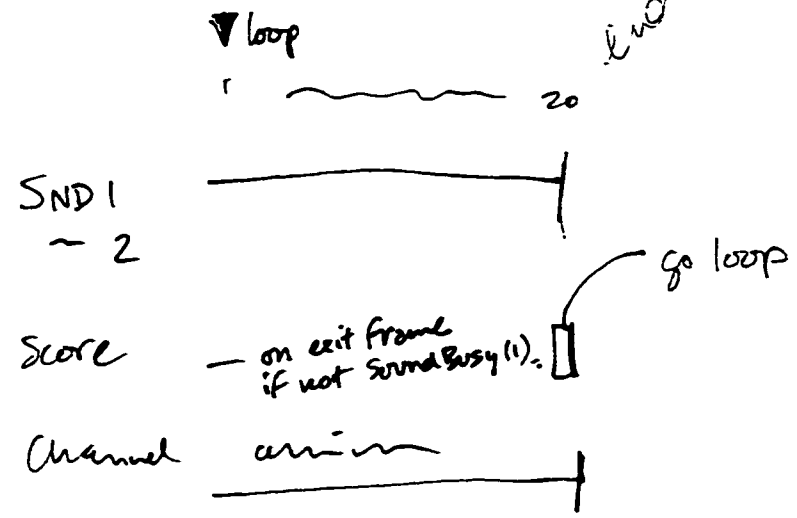 loop
1 20
SND 1
~ 2
go loop
Score — on exit frame
if not SoundBusy(1).
Channel